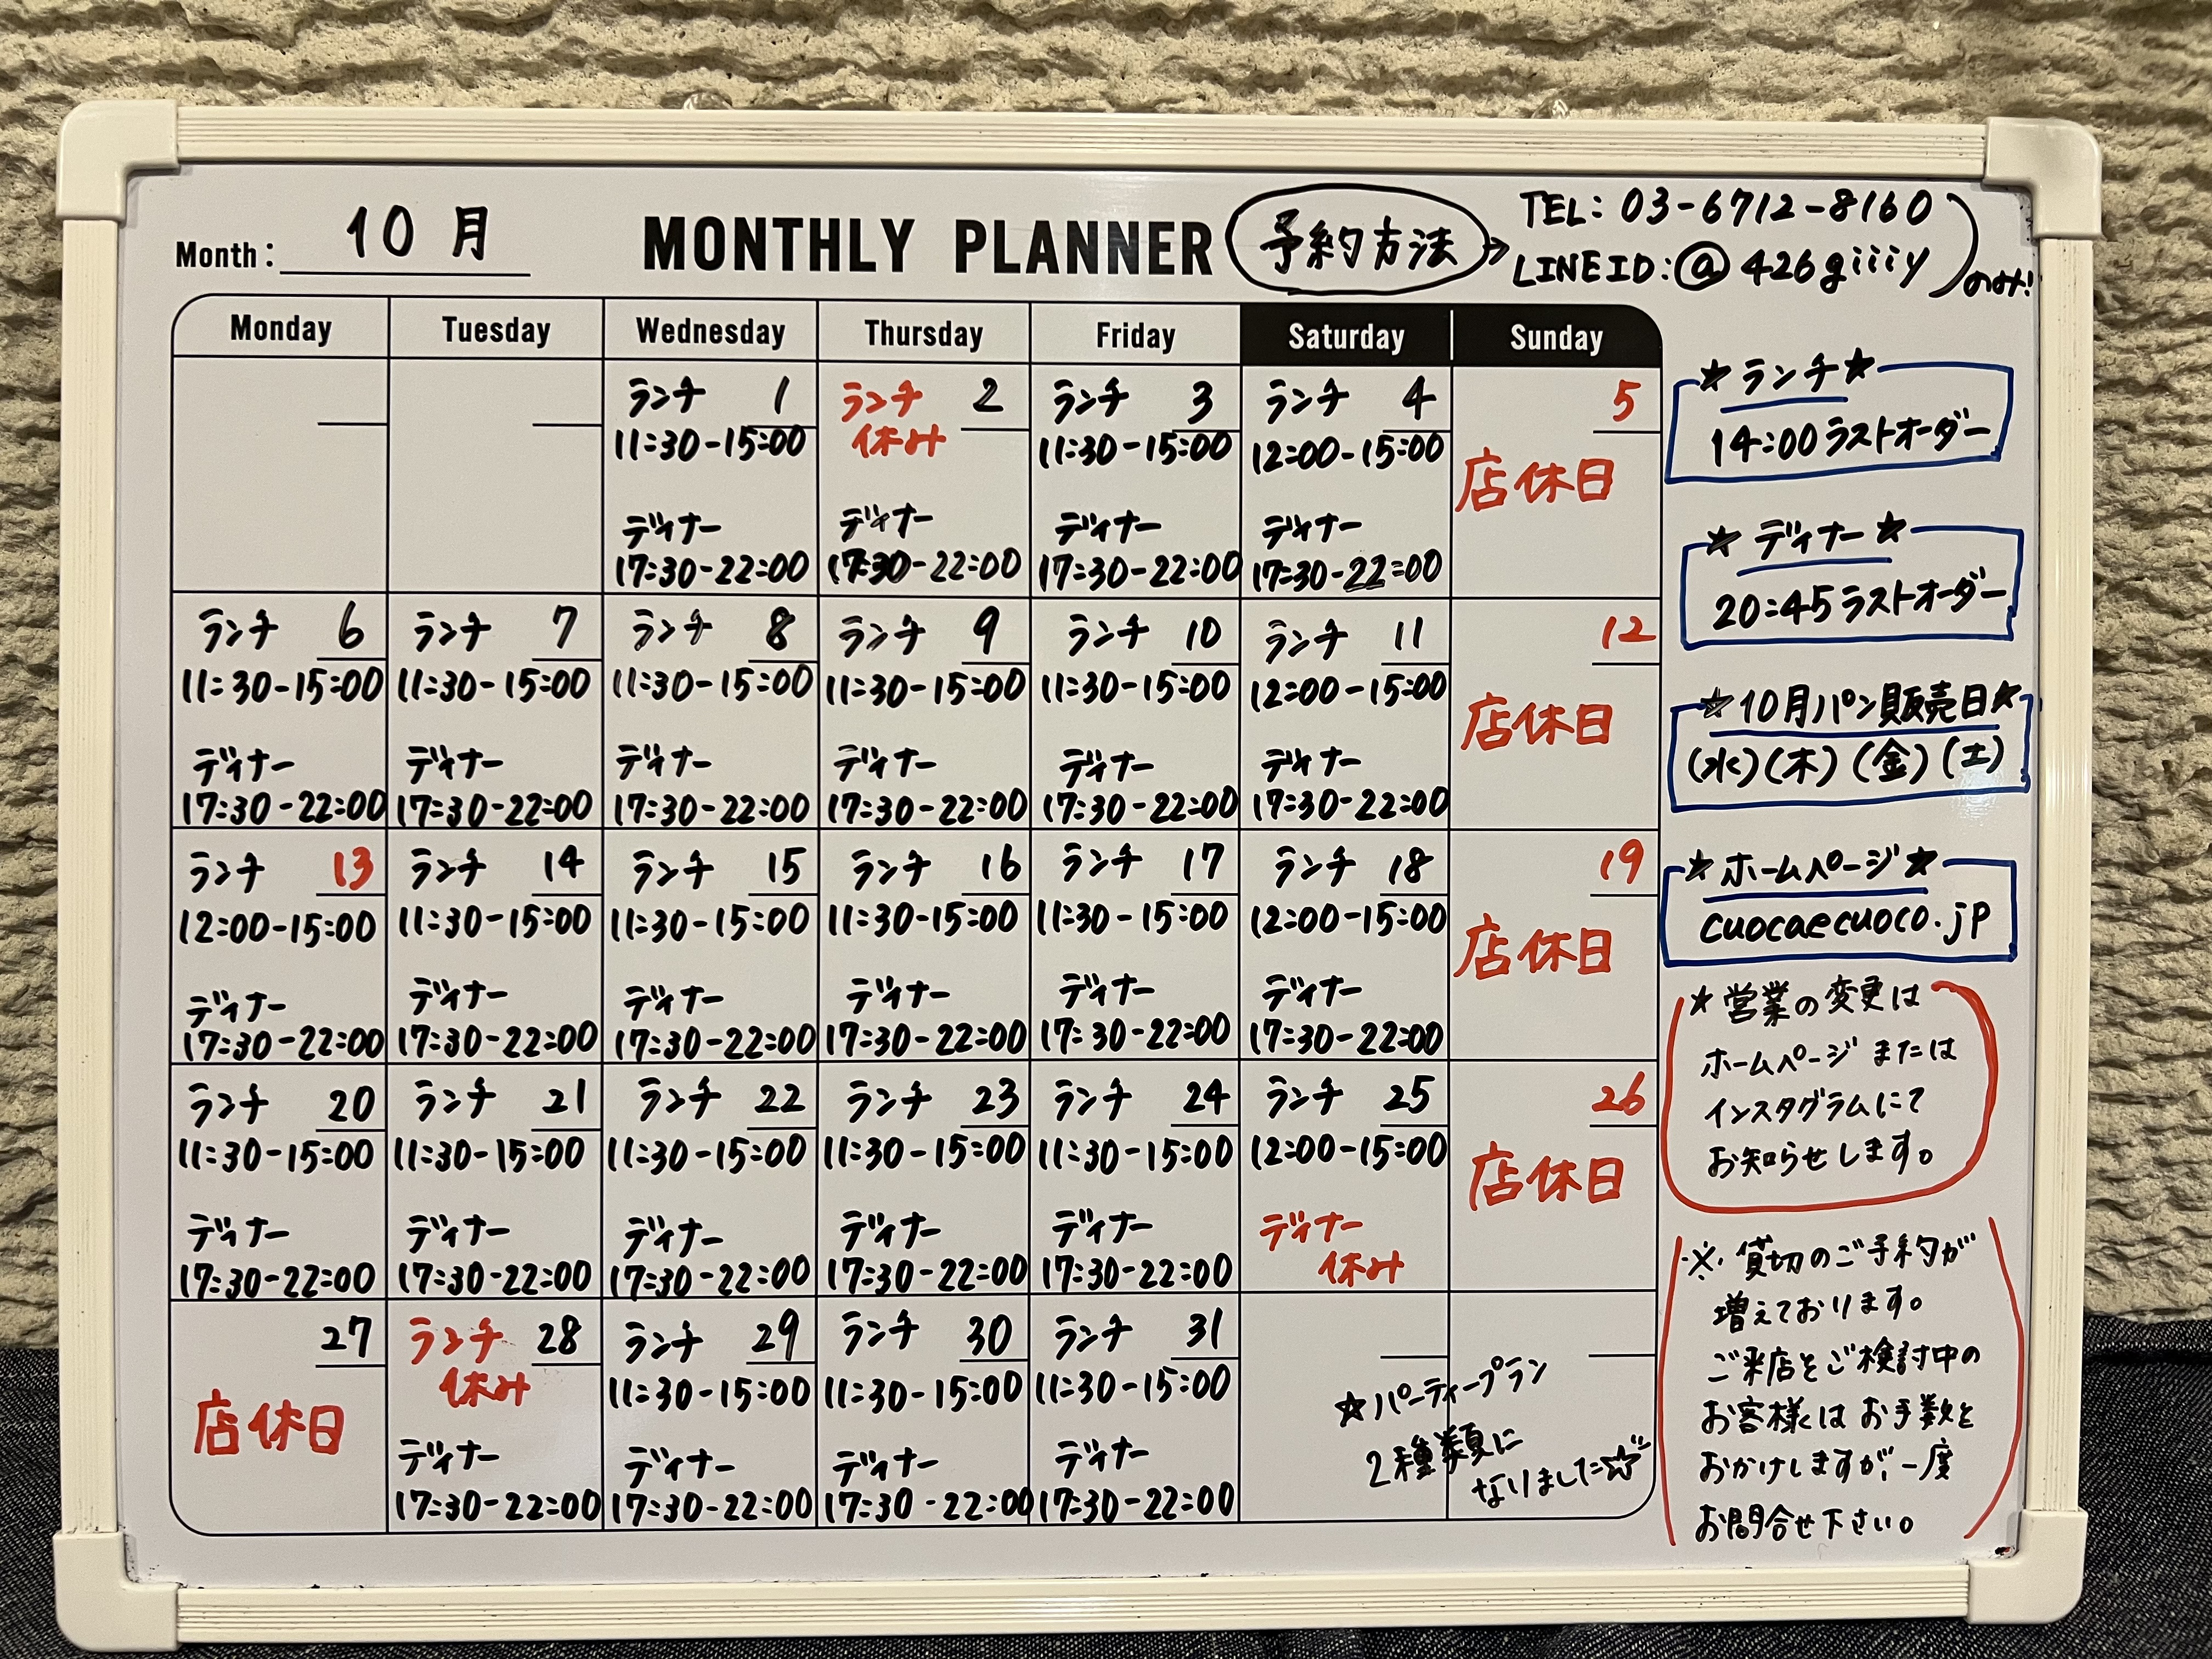 Month: 10月
MONTHLY PLANNER
予約方法→
TEL: 03-6712-8160
LINE ID: @426giiiy
のみ!
Monday Tuesday Wednesday Thursday Friday Saturday Sunday
ランチ 1
11:30-15:00
ディナー
17:30-22:00
ランチ 2
休み
ディナー
17:30-22:00
ランチ 3
11:30-15:00
ディナー
17:30-22:00
ランチ 4
12:00-15:00
ディナー
17:30-22:00
5
店休日
ランチ 6
11:30-15:00
ディナー
17:30-22:00
ランチ 7
11:30-15:00
ディナー
17:30-22:00
ランチ 8
11:30-15:00
ディナー
17:30-22:00
ランチ 9
11:30-15:00
ディナー
17:30-22:00
ランチ 10
11:30-15:00
ディナー
17:30-22:00
ランチ 11
12:00-15:00
ディナー
17:30-22:00
12
店休日
ランチ 13
12:00-15:00
ディナー
17:30-22:00
ランチ 14
11:30-15:00
ディナー
17:30-22:00
ランチ 15
11:30-15:00
ディナー
17:30-22:00
ランチ 16
11:30-15:00
ディナー
17:30-22:00
ランチ 17
11:30-15:00
ディナー
17:30-22:00
ランチ 18
12:00-15:00
ディナー
17:30-22:00
19
店休日
ランチ 20
11:30-15:00
ディナー
17:30-22:00
ランチ 21
11:30-15:00
ディナー
17:30-22:00
ランチ 22
11:30-15:00
ディナー
17:30-22:00
ランチ 23
11:30-15:00
ディナー
17:30-22:00
ランチ 24
11:30-15:00
ディナー
17:30-22:00
ランチ 25
12:00-15:00
ディナー
休み
26
店休日
27
店休日
ランチ 28
休み
ディナー
17:30-22:00
ランチ 29
11:30-15:00
ディナー
17:30-22:00
ランチ 30
11:30-15:00
ディナー
17:30-22:00
ランチ 31
11:30-15:00
ディナー
17:30-22:00
☆パーティープラン
2種類に
なりました☆
★ランチ★
14:00ラストオーダー
★ディナー★
20:45ラストオーダー
★10月パン販売日★
(水)(木)(金)(土)
★ホームページ★
cuocaecuoco.jp
★営業の変更は
ホームページまたは
インスタグラムにて
お知らせします。
※貸切のご予約が
増えております。
ご来店をご検討中の
お客様はお手数を
おかけしますが、一度
お問合せ下さい。